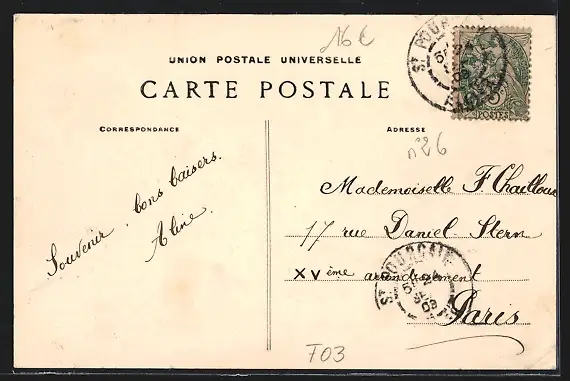 16 €
UNION POSTALE UNIVERSELLE
CARTE POSTALE
CORRESPONDANCE
ADRESSE
n°26
POSTES
5
Souvenir, bons baisers.
Aline.
Mademoiselle F.
17 rue Daniel Stern
XVème arrondissement
Paris
ST POURCAIN
F03